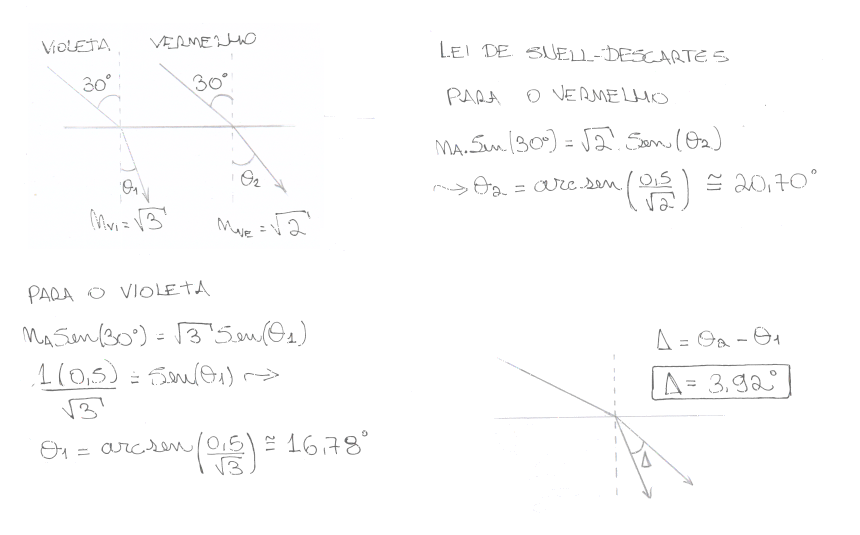 VIOLETA VERMELHO
30° 30°
θ1 θ2
nVI = √3 nVE = √2
LEI DE SNELL-DESCARTES
PARA O VERMELHO
nA.Sen(30°) = √2. Sen(θ2)
⇝ θ2 = arc.sen(0,5/√2) ≅ 20,70°
PARA O VIOLETA
nA Sen(30°) = √3 Sen(θ1)
1(0,5)/√3 = Sen(θ1) ⇝
θ1 = arc.sen(0,5/√3) ≅ 16,78°
Δ = θ2 - θ1
Δ = 3,92°
Δ